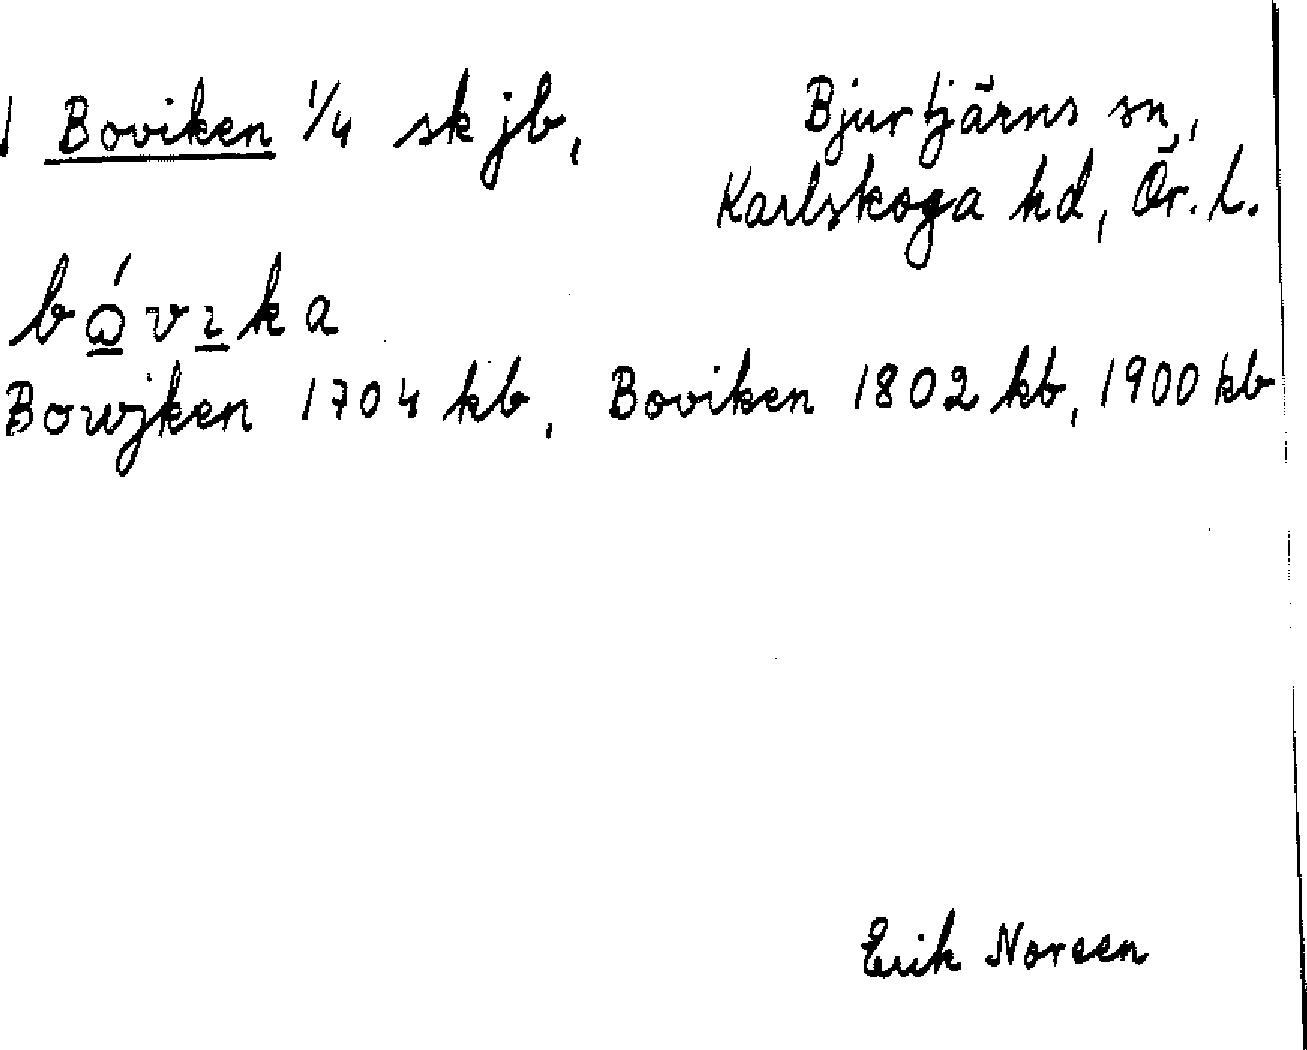 Boviken 1/4 sk jb, Bjurtjärns sn,
Karlskoga hd, Ör. L.
Bowjken 1704 kb, Boviken 1802 kb, 1900 kb
Erik Noreen